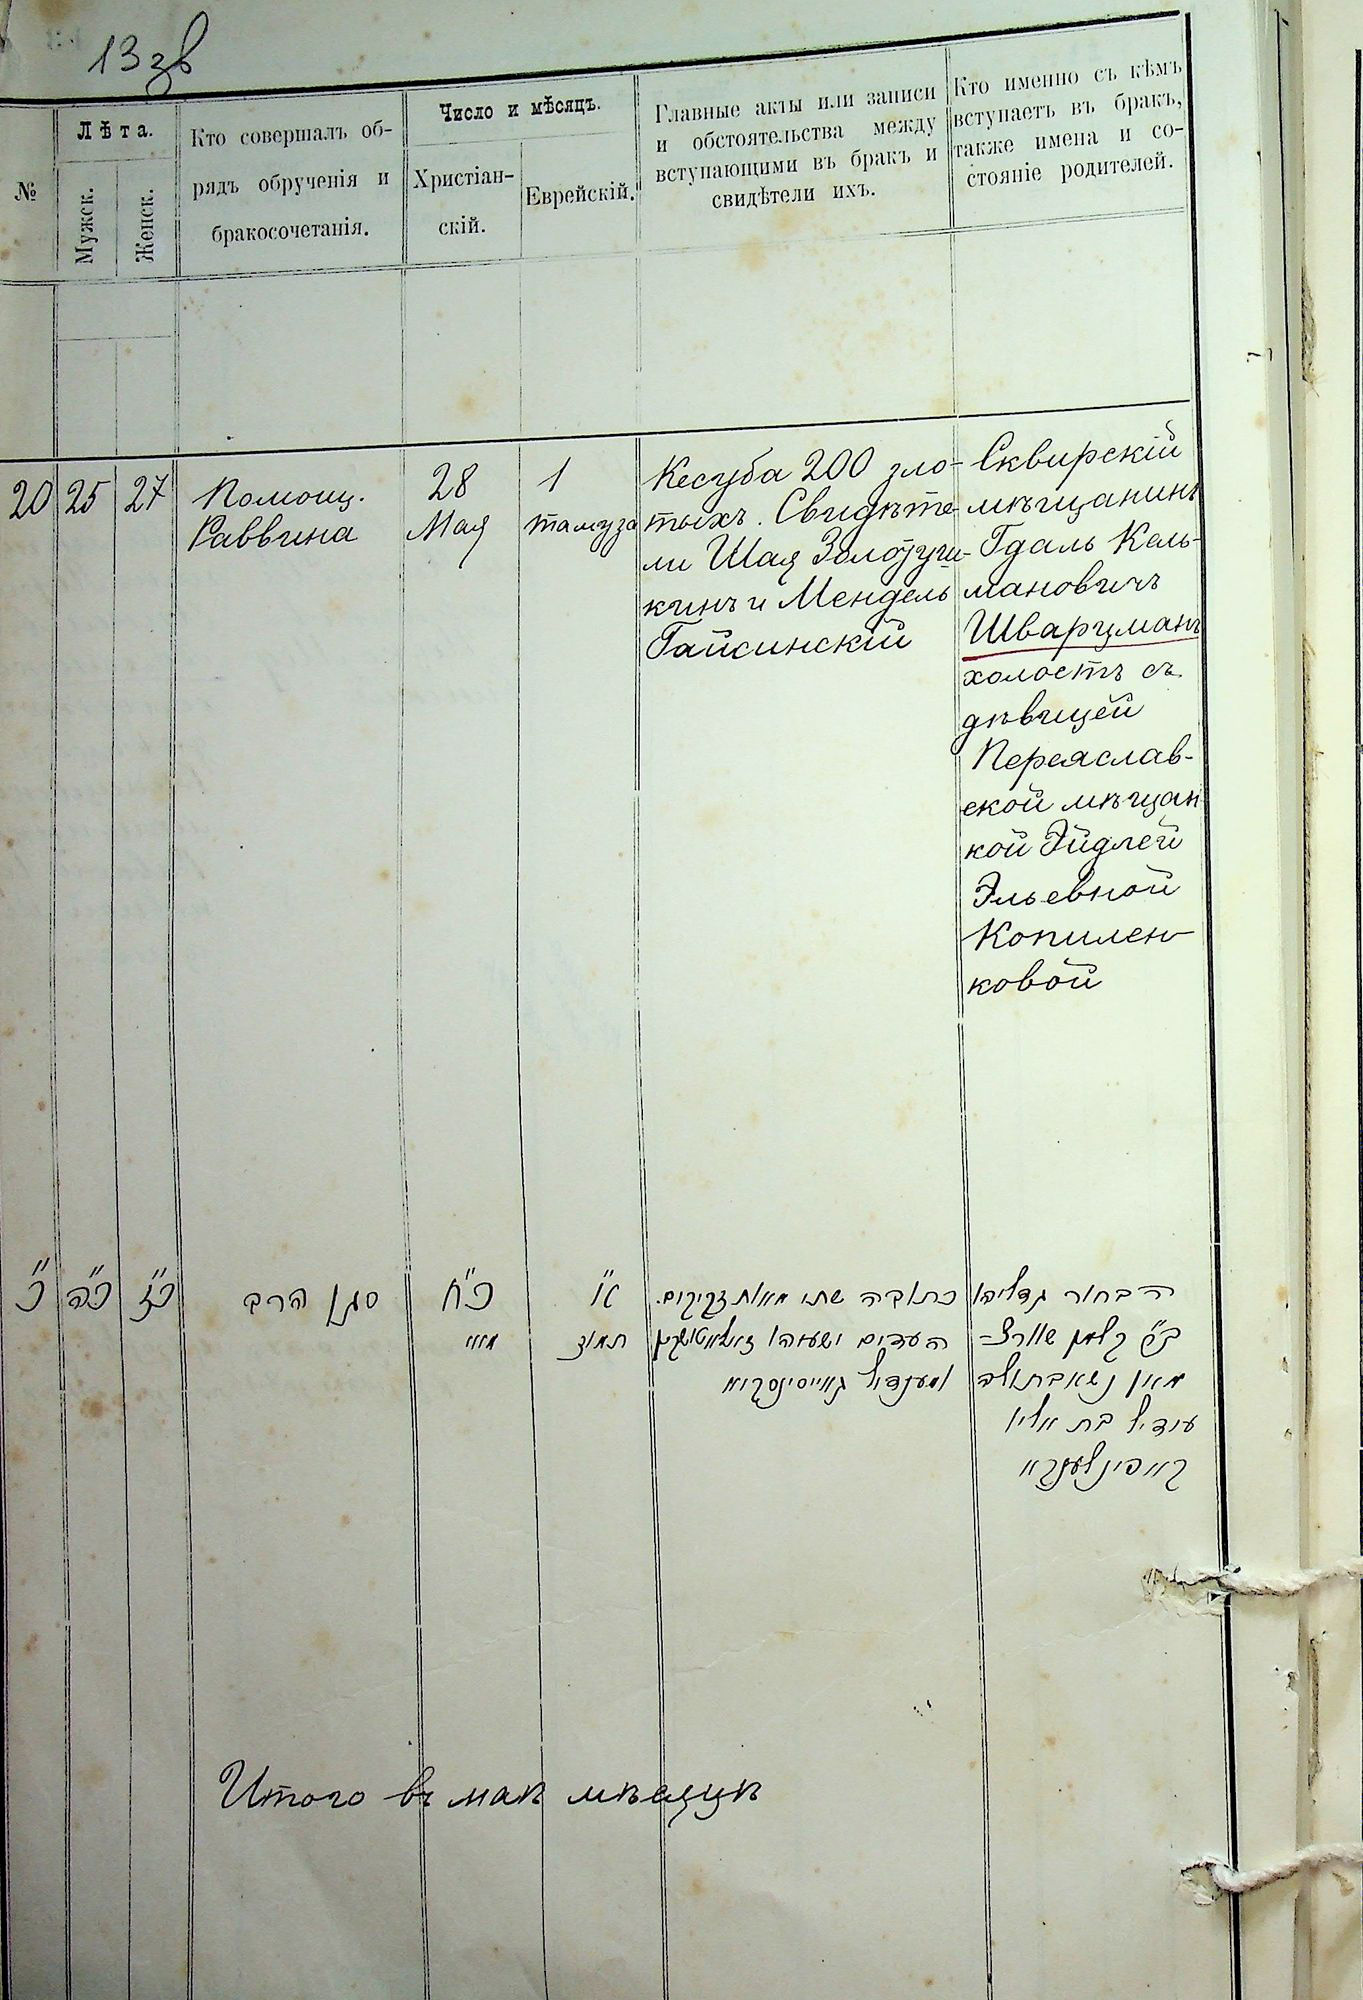 13 зв
№
Лѣта.
Мужск.
Женск.
Кто совершалъ об-
рядъ обрученія и
бракосочетанія.
Число и мѣсяцъ.
Христіан-
скій.
Еврейскій.
Главные акты или записи
и обстоятельства между
вступающими въ бракъ и
свидѣтели ихъ.
Кто именно съ кѣмъ
вступаетъ въ бракъ,
также имена и со-
стояніе родителей.
20
25
27
Помощ.
Раввина
28
Мая
1
тамуза
Кесуба 200 зло-
тыхъ. Свидѣте-
ли Шая Золотуш-
кинъ и Мендель
Гайсинскій
Сквирскій
мѣщанинъ
Гдаль Кель-
мановичъ
Шварцманъ
холостъ съ
дѣвицей
Переяслав-
ской мѣщан
кой Эйдлей
Эльевной
Копилен-
ковой
כ״
כ״ה
כ״ז
סגן הרב
כ״ח
מאי
א״
תמוז
כתובה שתי מאות זקוקים.
העדים ישעיהו
ומענדיל גאייסינסקיא
הבחור גדליהו
ב״ר קלמן שווארצ=
מאן נשא בתולה
איידיל בת אליו
קאפילענקא
Итого въ маѣ мѣсяцѣ